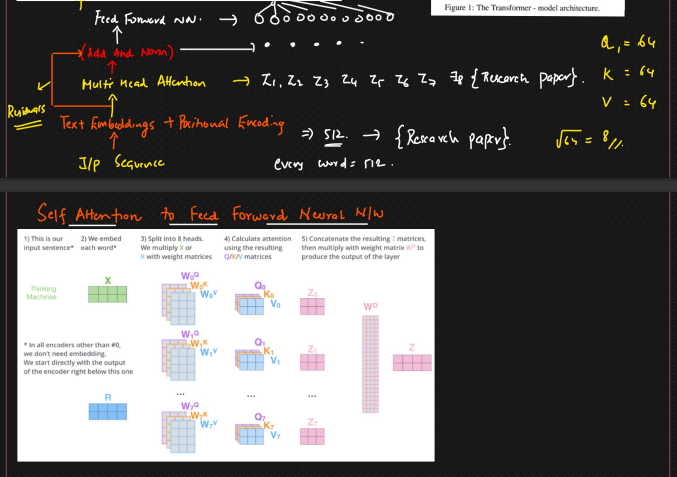 Figure 1: The Transformer - model architecture.
Feed Forward NN. →
(Add And Norm)
Multi Head Attention → Z1, Z2 Z3 Z4 Z5 Z6 Z7 Z8 {Research paper}.
Residuals
Text Embeddings + Positional Encoding ⇒ 512. → {Research paper}.
I/p Sequence
every word = 512.
Q, = 64
K = 64
V = 64
√64 = 8 //.
Self Attention to Feed Forward Neural N/W
1) This is our input sentence*
2) We embed each word*
3) Split into 8 heads. We multiply X or R with weight matrices
4) Calculate attention using the resulting Q/K/V matrices
5) Concatenate the resulting Z matrices, then multiply with weight matrix W^O to produce the output of the layer
Thinking
Machines
X
W0^Q
W0^K
W0^V
Q0
K0
V0
Z0
W^O
* In all encoders other than #0,
we don't need embedding.
We start directly with the output
of the encoder right below this one
W1^Q
W1^K
W1^V
Q1
K1
V1
Z1
Z
...
...
...
R
W7^Q
W7^K
W7^V
Q7
K7
V7
Z7